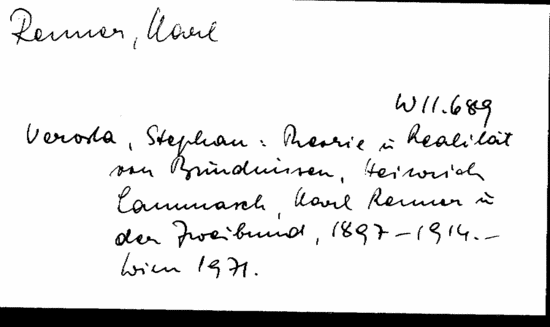 Renner, Karl
W 11.689
Verosta, Stephan: Theorie u Realität
von Bündnissen, Heinrich
Lammasch, Karl Renner u
der Zweibund, 1897-1914.-
Wien 1971.